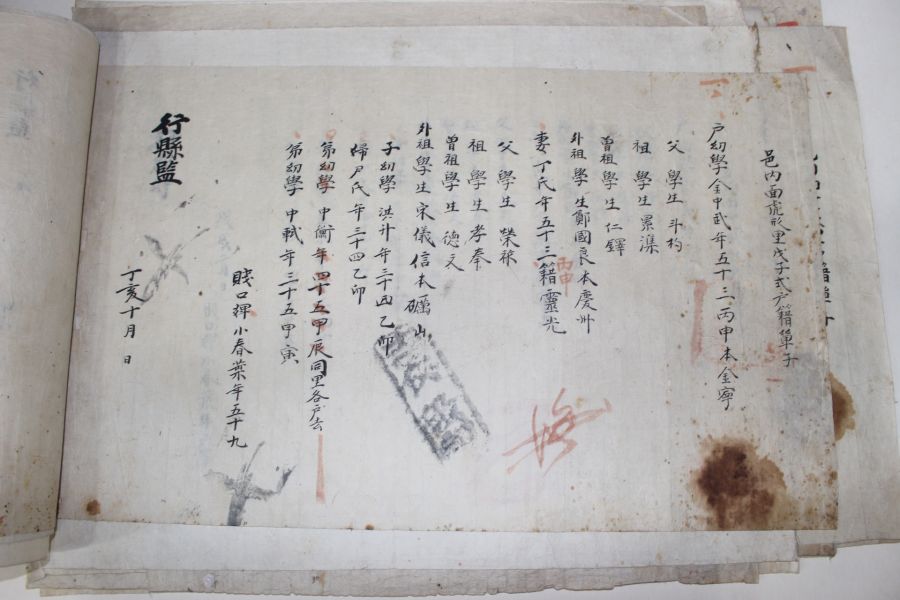 邑內面虎形里戊子式戶籍單子
戶幼學金中武年五十二丙申本金寧
父學生斗杓
祖學生累漢
曾祖學生仁鐸
外祖學生鄭國良本慶州
妻丁氏年五十三籍靈光
丙申
父學生榮
祖學生孝奉
曾祖學生德文
外祖學生宋儀信本礪山
子幼學洪 年三十四乙卯
婦尹氏年三十四乙卯
弟幼學中衡年四十五甲辰同里各戶去
弟幼學中軾年三十五甲寅
賤口婢小春葉年五十九
丁亥十月 日
行縣監